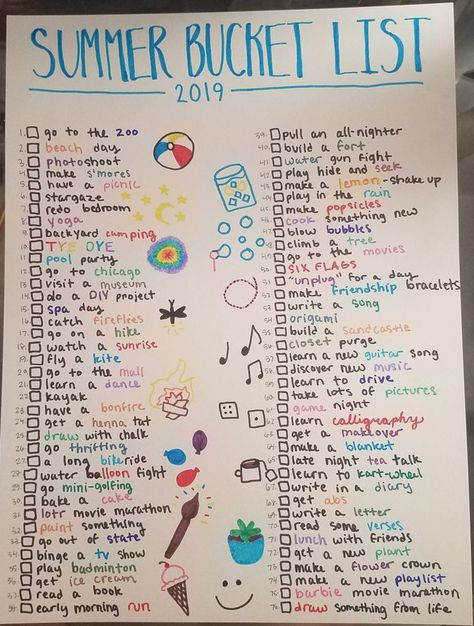 SUMMER BUCKET LIST
2019
1. go to the zoo
2. beach day
3. photoshoot
4. make s'mores
5. have a picnic
6. stargaze
7. redo bedroom
8. yoga
9. backyard camping
10. TYE DYE
11. pool party
12. go to chicago
13. visit a museum
14. do a DIY project
15. spa day
16. catch fireflies
17. go on a hike
18. watch a sunrise
19. fly a kite
20. go to the mall
21. learn a dance
22. kayak
23. have a bonfire
24. get a henna tat
25. draw with chalk
26. go thrifting
27. a long bike ride
28. water balloon fight
29. go mini-golfing
30. bake a cake
31. lotr movie marathon
32. paint something
33. go out of state
34. binge a tv show
35. play badminton
36. get ice cream
37. read a book
38. early morning run
39. pull an all-nighter
40. build a fort
41. water gun fight
42. play hide and seek
43. make a lemon-shake up
44. play in the rain
45. make popsicles
46. cook something new
47. blow bubbles
48. climb a tree
49. go to the movies
50. SIX FLAGS
51. "unplug" for a day
52. make friendship bracelets
53. write a song
54. origami
55. build a sandcastle
56. closet purge
57. learn a new guitar song
58. discover new music
59. learn to drive
60. take lots of pictures
61. game night
62. learn calligraphy
63. get a makeover
64. make a blanket
65. late night tea talk
66. learn to kart-wheel
67. write in a diary
68. get abs
69. write a letter
70. read some verses
71. lunch with friends
72. get a new plant
73. make a flower crown
74. make a new playlist
75. barbie movie marathon
76. draw something from life